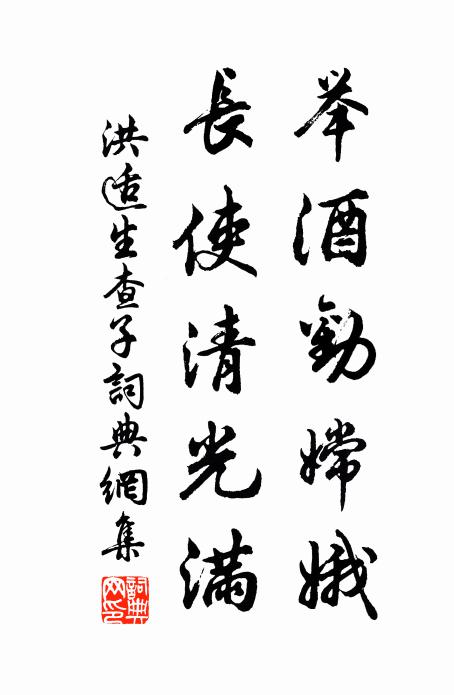 举酒勸嫦娥
長使清光滿
洪适生查子詞典網集
詞典网印